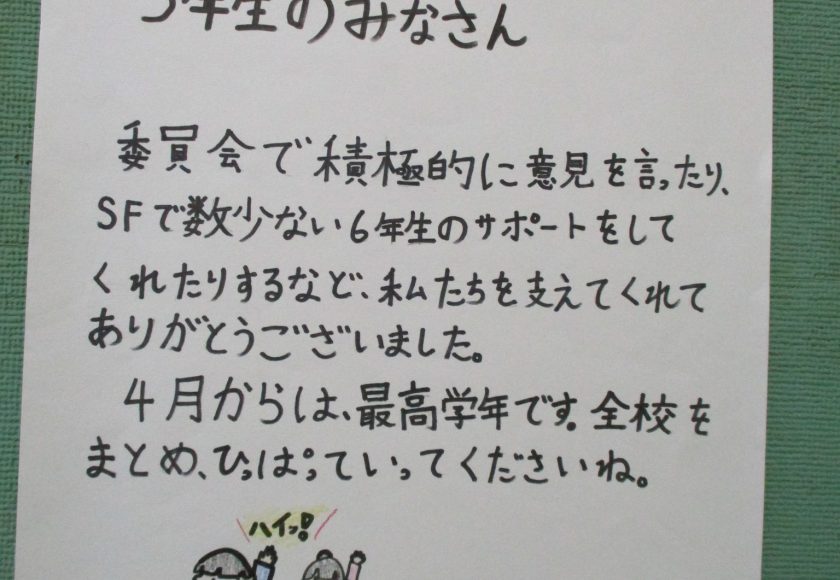 5年生のみなさん
委員会で積極的に意見を言ったり、
SFで数少ない6年生のサポートをして
くれたりするなど、私たちを支えてくれて
ありがとうございました。
4月からは、最高学年です。全校を
まとめ、ひっぱっていってくださいね。
ハイッ!